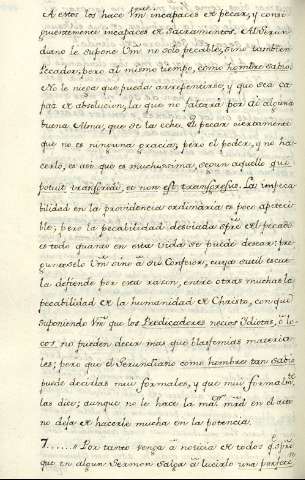 A estos los hace Vm incapaces de pecar, y consi
guientemente incapaces de Sacramentos. Al Gerun
diano le supone Vm no solo pecable, sino tambien
Pecador; pero al mismo tiempo, como hombre sabio
No le niega que pueda arrepentirse, y que sea ca
paz de absolucion, la que no faltará por ai alguna
buena Alma, que se la eche. El pecar ciertamente
que no es ninguna gracia; pero el poder, y no ha
cerlo, es asi que es muchissima, segun aquello qui
potuit transgredi, et non est transgressus. La impeca
bilidad en la providencia ordinaria es poco apeteci
ble; pero la pecabilidad desviada del pecado
es todo quanto en esta vida se puede desear: pre
gunteselo Vm sino à su Confesor, cuya sutil escue
la defiende por esta razon, entre otras muchas la
pecabilidad de la humanidad de Christo, con que
suponiendo Vm que los Predicadores necios Idiotas, ò lo
cos, no pueden decir mas que blasfemias materia
les; pero que el Gerundiano como hombre tan sabio
puede decirlas mui formales, y que mui formalmte
las dice; aunque no le hace la mad en el acto
no deja de hacerle mucha en la potencia.
7...... Por tanto venga à noticia de todos
que en algun Sermon salga à lucirlo una